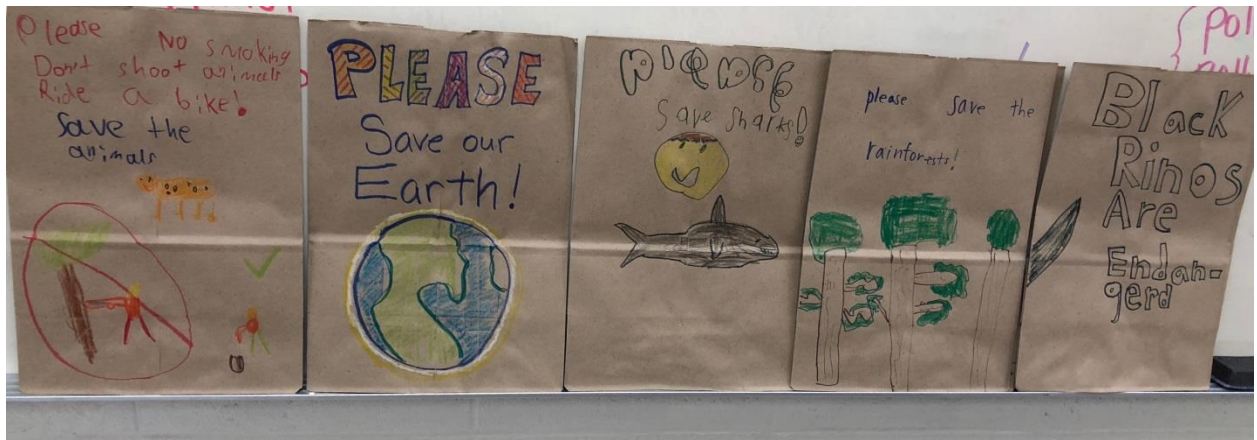 Please No smoking
Don't shoot animals
Ride a bike!
Save the
animals
PLEASE
Save our
Earth!
please
Save sharks!
please save the
rainforests!
Black
Rinos
Are
Endan-
gerd